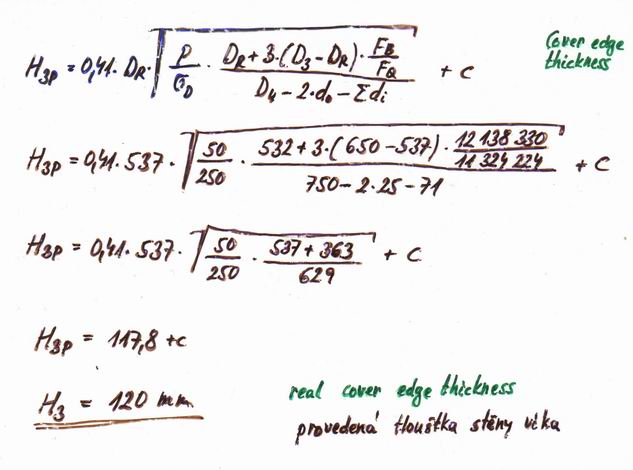 H3p = 0,41 · DR · √(p/σD · (DR + 3 · (D3 − DR) · FB/FQ)/(D4 − 2 · do − Σdi)) + c
Cover edge
thickness
H3p = 0,41 · 537 · √(50/250 · (532 + 3 · (650 − 537) · 12 138 330/11 324 224)/(750 − 2 · 25 − 71)) + c
H3p = 0,41 · 537 · √(50/250 · (537 + 363)/629) + c
H3p = 117,8 + c
H3 = 120 mm
real cover edge thickness
provedená tloušťka stěny víka